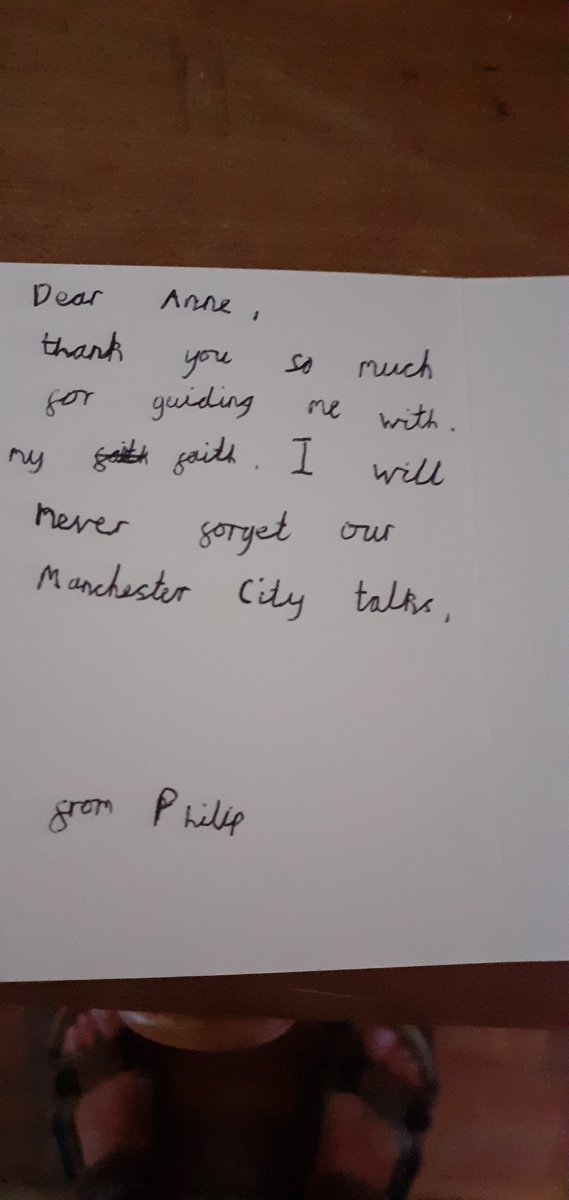 Dear Anne,
thank you so much
for guiding me with.
my faith faith. I will
never forget our
Manchester City talks,
from Philip